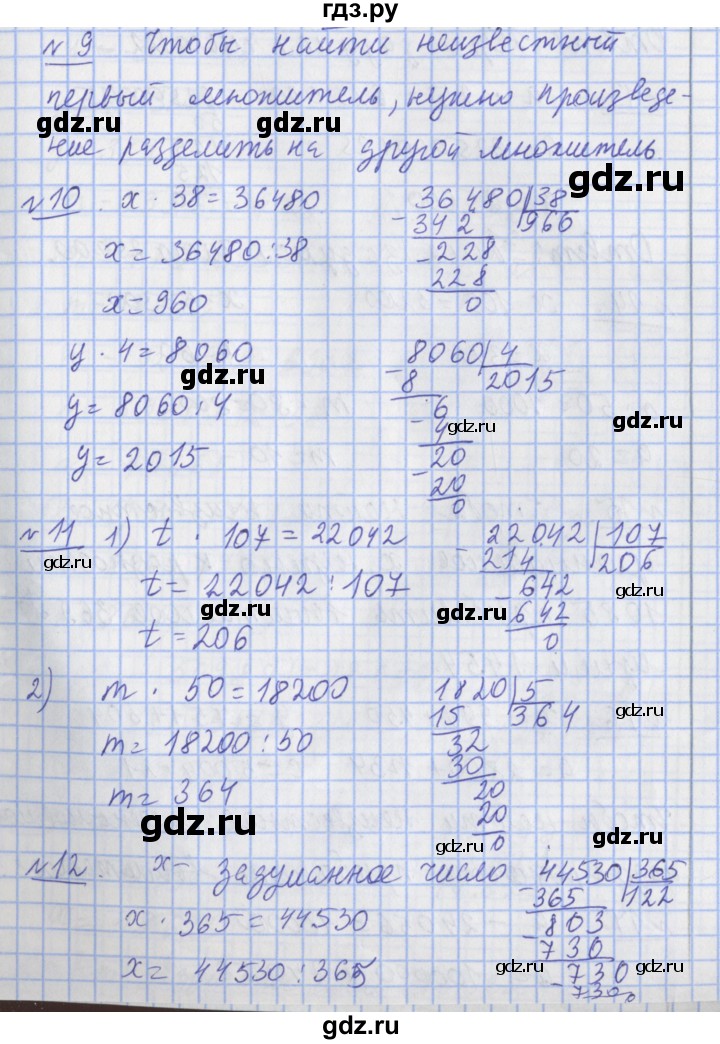 гдз.ру
№9 Чтобы найти неизвестный
первый множитель, нужно произведе-
ние разделить на другой множитель
gdz.ru gdz.ru gdz.ru
№10 . x · 38 = 36480
x = 36480 : 38
x = 960
36480 38
- 342 960
- 228
228
0
gdz.ru
gdz.ru
y · 4 = 8060
gdz.ru
y = 8060 : 4
y = 2015
8060 4
- 8 2015
6
- 4
20
- 20
0
gdz.ru
gdz.ru
№11 1) t · 107 = 22042
gdz.ru
t = 22042 : 107
gdz.ru
t = 206
22042 107
- 214 206
- 642
642
0
gdz.ru
gdz.ru
2) m · 50 = 18200
m = 18200 : 50
m = 364
1820 5
15 364
32
30
20
20
0
gdz.ru
gdz.ru
gdz.ru
gdz.ru
№12. x - задуманное число
x · 365 = 44530
x = 44530 : 365
44530 365
- 365 122
- 803
730
- 730
730
0
gdz.ru
gdz.ru
gdz.ru
gdz.ru